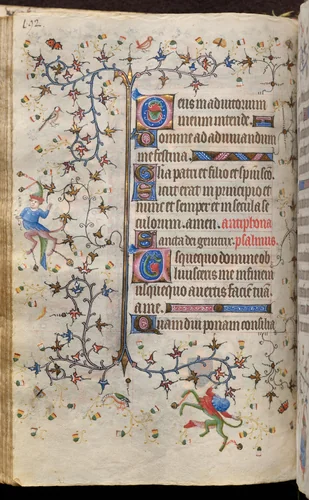 132
Deus in adiutorium
meum intende.
Domine ad adiuuandum
me festina.
Glia patri et filio et spiri sco
Sicut erat in principio et
nunc et semper et in secula se
culorum. amen. antiphona
Sancta dei genitrix. psalmus.
Usquequo domine ob
liuisceris me in finem
usquequo auertis facie tua
a me.
Quam diu ponam consilia